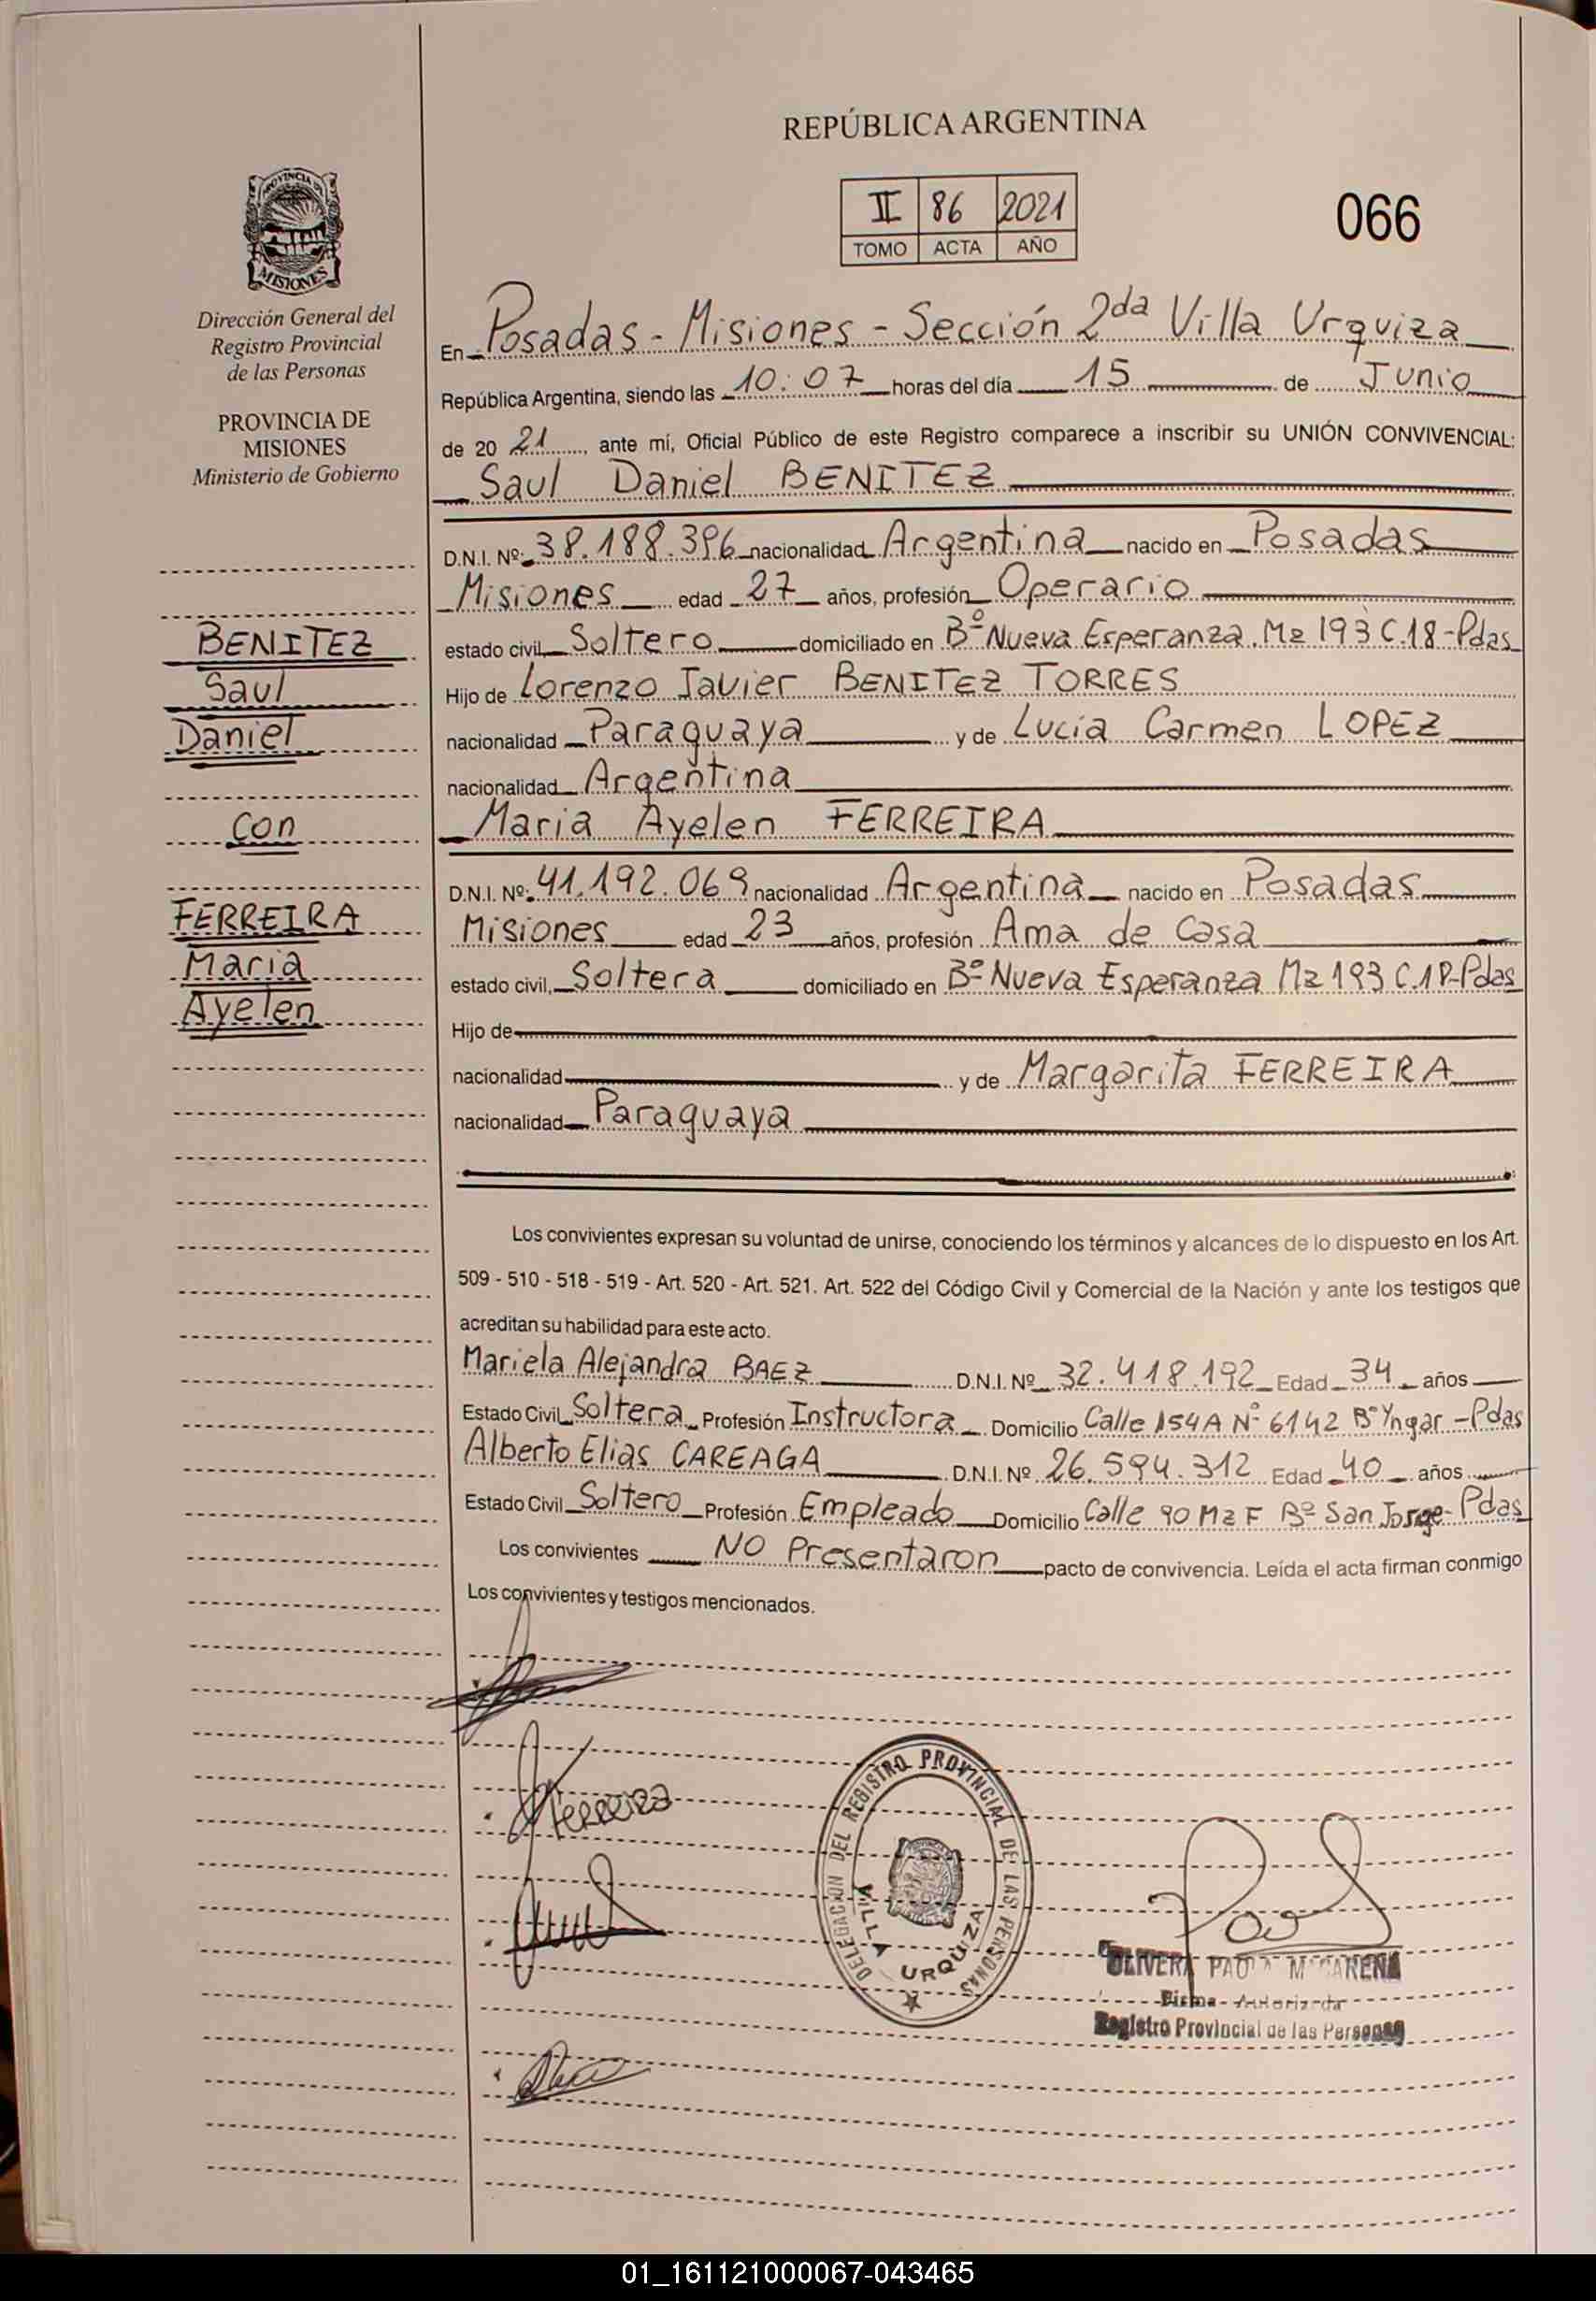 REPÚBLICA ARGENTINA
II 86 2021
TOMO ACTA AÑO
066
PROVINCIA DE
MISIONES
Dirección General del
Registro Provincial
de las Personas
PROVINCIA DE
MISIONES
Ministerio de Gobierno
En Posadas - Misiones - Sección 2da Villa Urquiza
República Argentina, siendo las 10:07 horas del día 15 de Junio
de 20 21, ante mí, Oficial Público de este Registro comparece a inscribir su UNIÓN CONVIVENCIAL:
Saul Daniel BENITEZ
D.N.I. Nº: 38.188.396 nacionalidad Argentina nacido en Posadas
Misiones edad 27 años, profesión Operario
estado civil, Soltero domiciliado en Bº Nueva Esperanza. Mz 193 C.18-Pdas
Hijo de Lorenzo Javier BENITEZ TORRES
nacionalidad Paraguaya y de Lucia Carmen LOPEZ
nacionalidad Argentina
Maria Ayelen FERREIRA
D.N.I. Nº: 41.192.069 nacionalidad Argentina nacido en Posadas
Misiones edad 23 años, profesión Ama de casa
estado civil, Soltera domiciliado en Bº Nueva Esperanza Mz 193 C.18-Pdas
Hijo de
nacionalidad y de Margarita FERREIRA
nacionalidad Paraguaya
BENITEZ
Saul
Daniel
con
FERREIRA
Maria
Ayelen
Los convivientes expresan su voluntad de unirse, conociendo los términos y alcances de lo dispuesto en los Art.
509 - 510 - 518 - 519 - Art. 520 - Art. 521. Art. 522 del Código Civil y Comercial de la Nación y ante los testigos que
acreditan su habilidad para este acto.
Mariela Alejandra BAEZ D.N.I. Nº 32.418.192 Edad 34 años
Estado Civil Soltera Profesión Instructora Domicilio Calle 154A Nº 6142 Bº Yngar - Pdas
Alberto Elias CAREAGA D.N.I. Nº 26.594.312 Edad 40 años
Estado Civil Soltero Profesión Empleado Domicilio Calle 90 Mz F Bº San Jorge - Pdas
Los convivientes NO Presentaron pacto de convivencia. Leída el acta firman conmigo
Los convivientes y testigos mencionados.
Ferreira
DELEGACION DEL REGISTRO PROVINCIAL DE LAS PERSONAS
VILLA URQUIZA
OLIVERA PAULA MACARENA
Firma Autorizada
Registro Provincial de las Personas
01_161121000067-043465